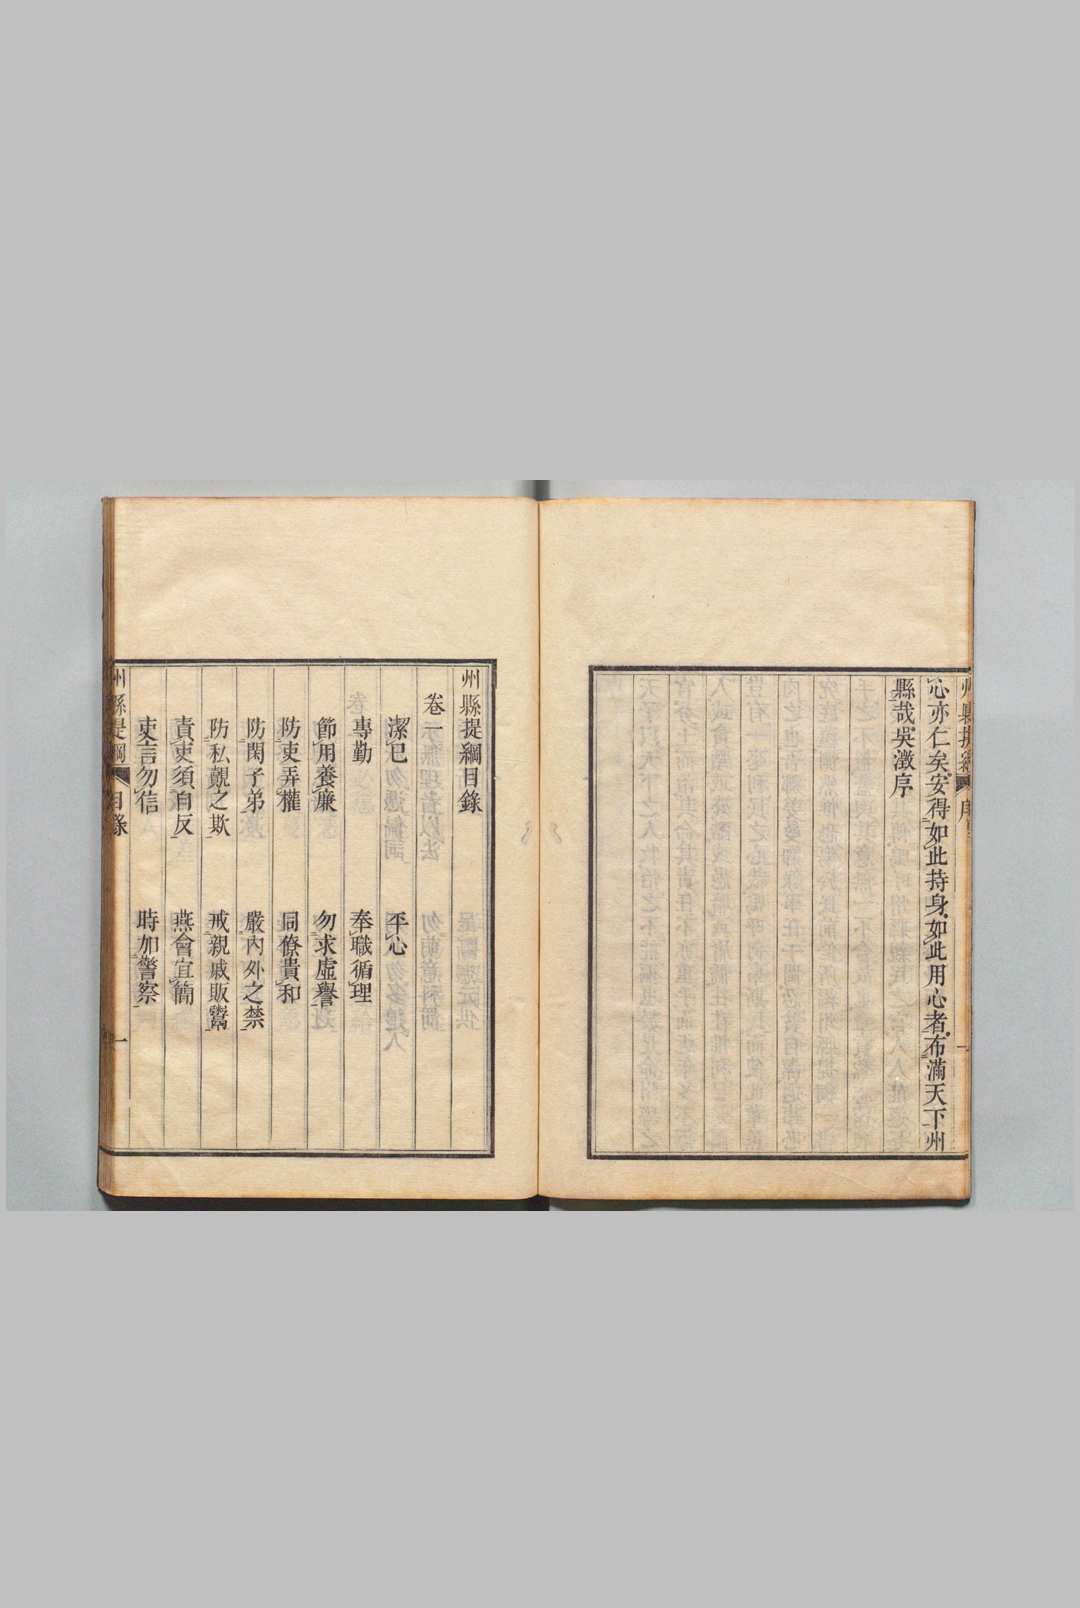 心亦仁矣安得如此持身如此用心者布滿天下州
縣哉吳澂序
州縣提綱目錄
卷一
潔己 平心
專勤 奉職循理
節用養廉 勿求虛譽
防吏弄權 同僚貴和
防閑子弟 嚴內外之禁
防私覿之欺 戒親戚販鬻
責吏須自反 燕會宜簡
吏言勿信 時加警察
州縣提綱 目錄 一